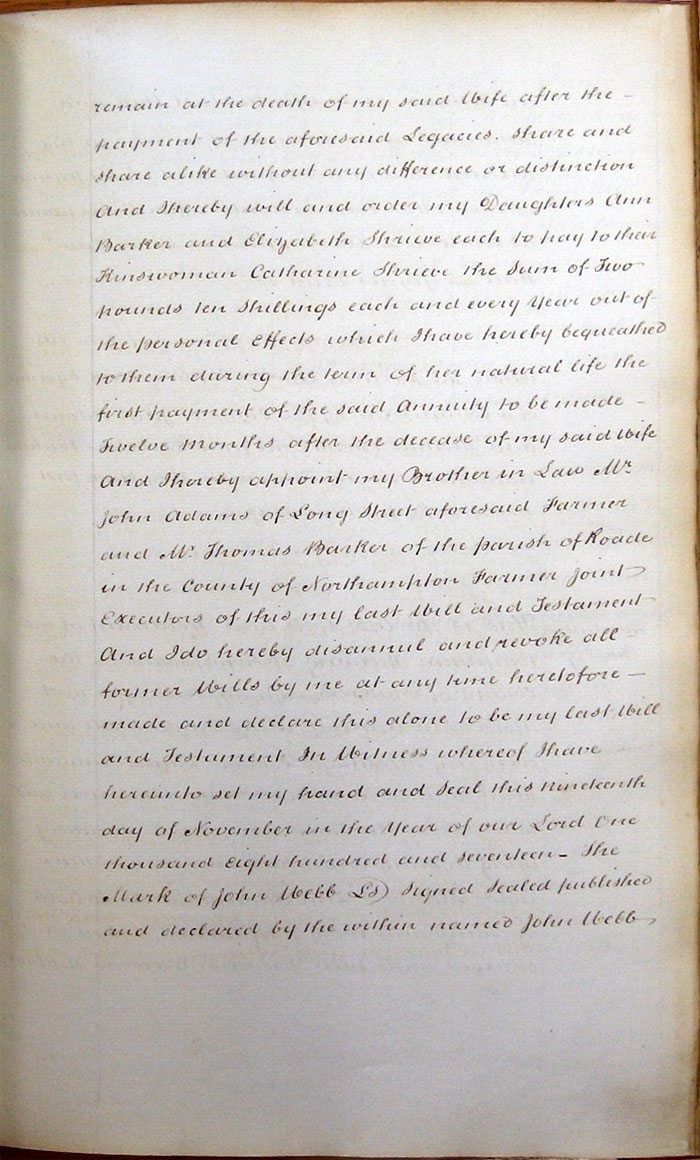 remain at the death of my said Wife after the –
payment of the aforesaid Legacies. share and
share alike without any difference or distinction
And I hereby will and order my Daughters Ann
Barker and Elizabeth Shrieve each to pay to their
Kinswoman Catharine Shrieve the Sum of Two
pounds ten Shillings each and every Year out of
the personal Effects which I have hereby bequeathed
to them during the term of her natural life the
first payment of the said Annuity to be made –
Twelve Months after the decease of my said Wife
And I hereby appoint my Brother in Law Mr.
John Adams of Long Street aforesaid Farmer
and Mr. Thomas Barker of the parish of Roade
in the County of Northampton Farmer Joint
Executors of this my last Will and Testament
And I do hereby disannul and revoke all
former Wills by me at any time heretofore –
made and declare this alone to be my last Will
and Testament In Witness whereof I have
hereunto set my hand and Seal this nineteenth
day of November in the Year of our Lord One
thousand Eight hundred and seventeen – The
Mark of John Webb (Ls) Signed Sealed published
and declared by the within named John Webb